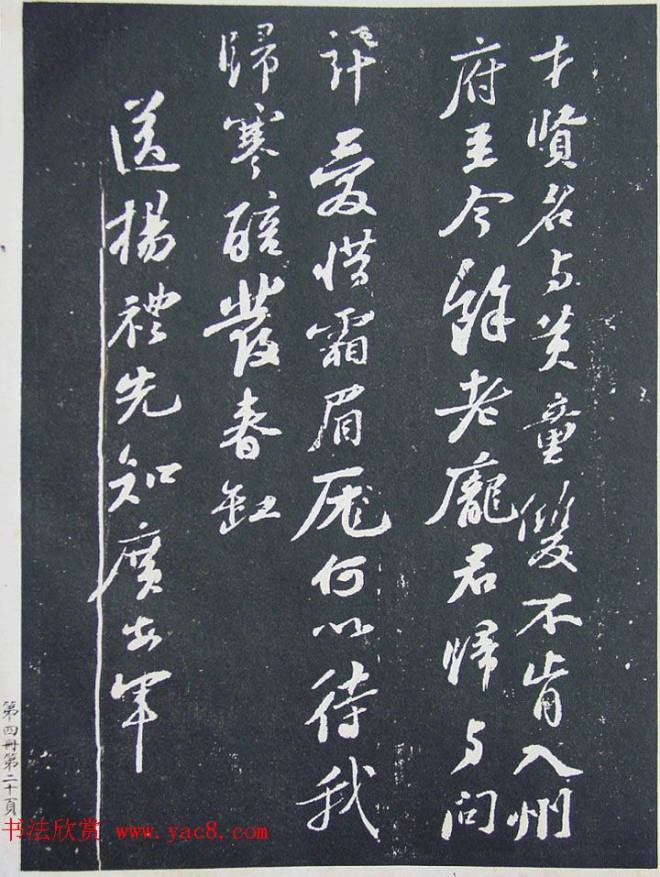 才賢名与黄童雙不肯入州
府至今餘老龐君歸与問
訊愛惜霜眉厖何以待我
歸寒醅發春缸
送楊禮先知廣安軍
第四冊第二十頁
书法欣赏 www.yac8.com